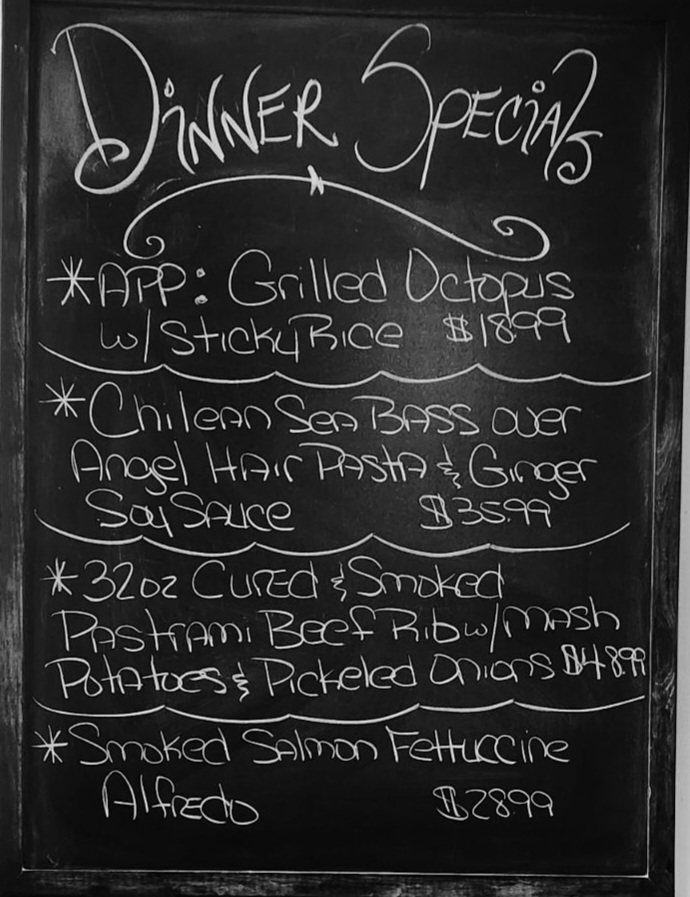 Dinner Specials
*APP: Grilled Octopus
w/ Sticky Rice $18.99
*Chilean Sea Bass over
Angel Hair Pasta & Ginger
Soy Sauce $35.99
*32oz Cured & Smoked
Pastrami Beef Rib w/ mash
Potatoes & Pickeled Onions $48.99
*Smoked Salmon Fettuccine
Alfredo $28.99